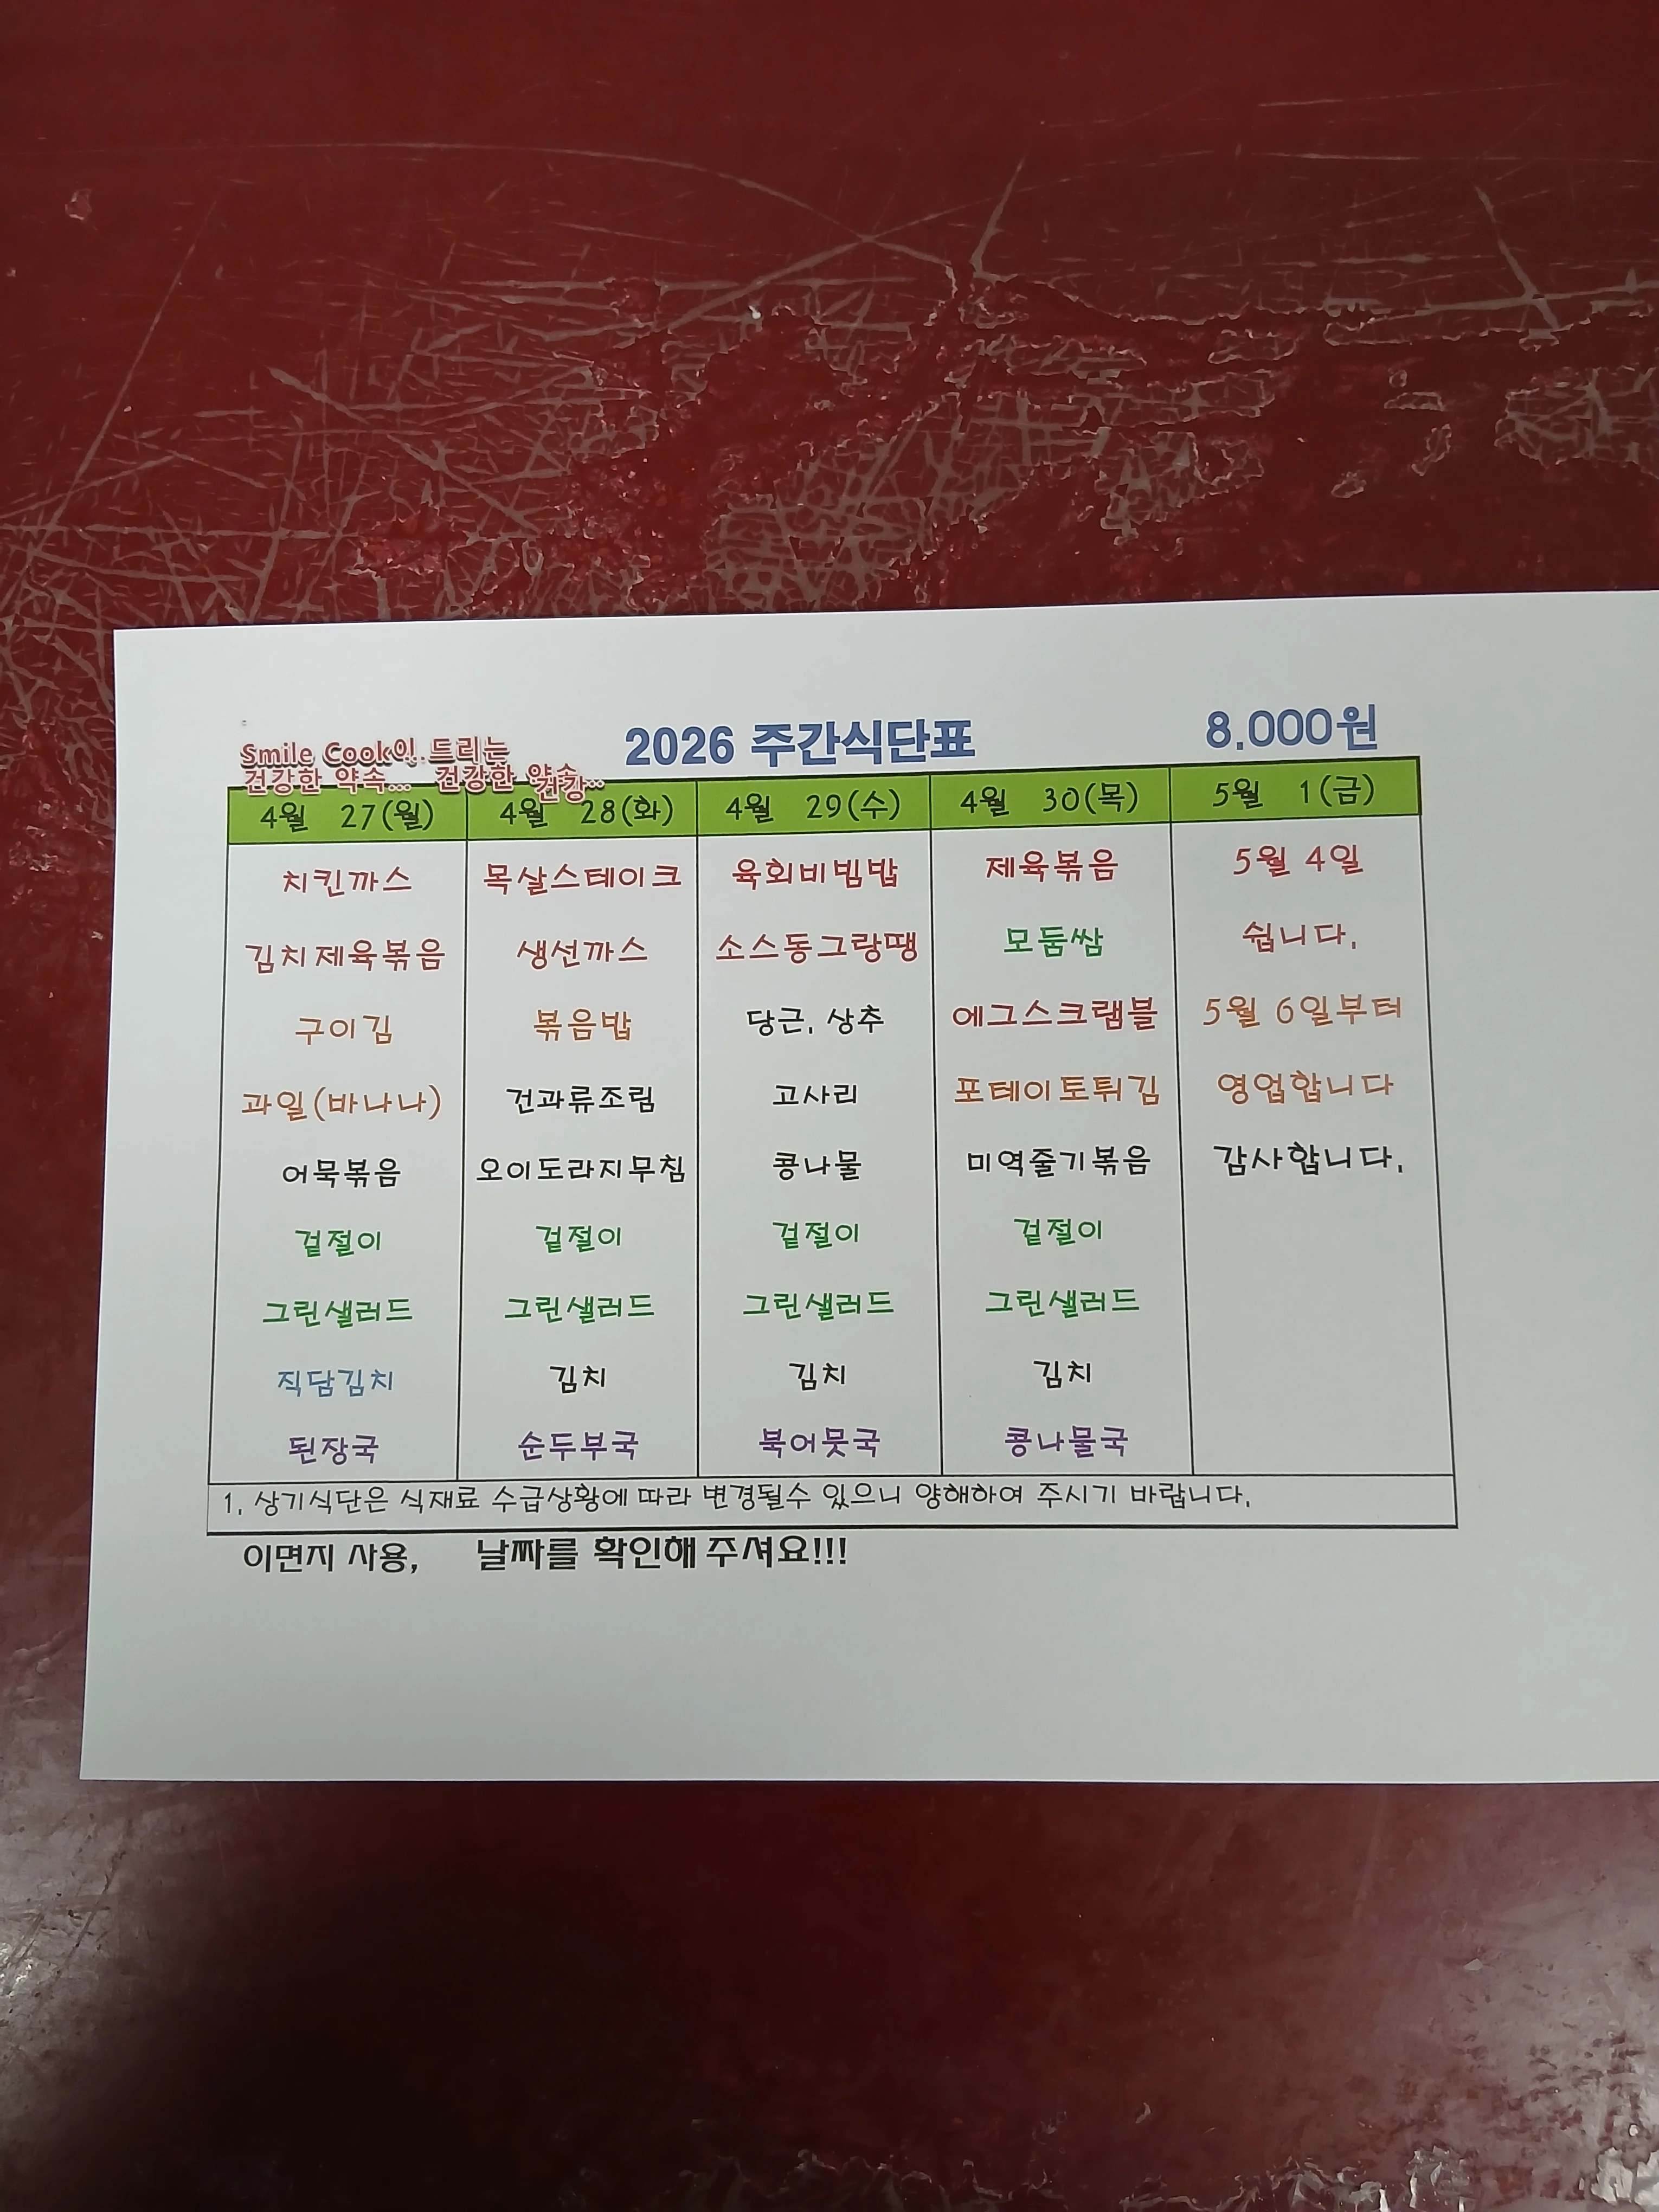 Smile Cook이 드리는
건강한 약속... 건강한 약속
건강..
2026 주간식단표
8.000원
4월 27(월) 4월 28(화) 4월 29(수) 4월 30(목) 5월 1(금)
치킨까스 목살스테이크 육회비빔밥 제육볶음 5월 4일
김치제육볶음 생선까스 소스동그랑땡 모둠쌈 쉽니다.
구이김 볶음밥 당근, 상추 에그스크램블 5월 6일부터
과일(바나나) 건과류조림 고사리 포테이토튀김 영업합니다
어묵볶음 오이도라지무침 콩나물 미역줄기볶음 감사합니다.
겉절이 겉절이 겉절이 겉절이
그린샐러드 그린샐러드 그린샐러드 그린샐러드
직담김치 김치 김치 김치
된장국 순두부국 북어뭇국 콩나물국
1. 상기식단은 식재료 수급상황에 따라 변경될수 있으니 양해하여 주시기 바랍니다.
이면지 사용, 날짜를 확인해 주셔요!!!